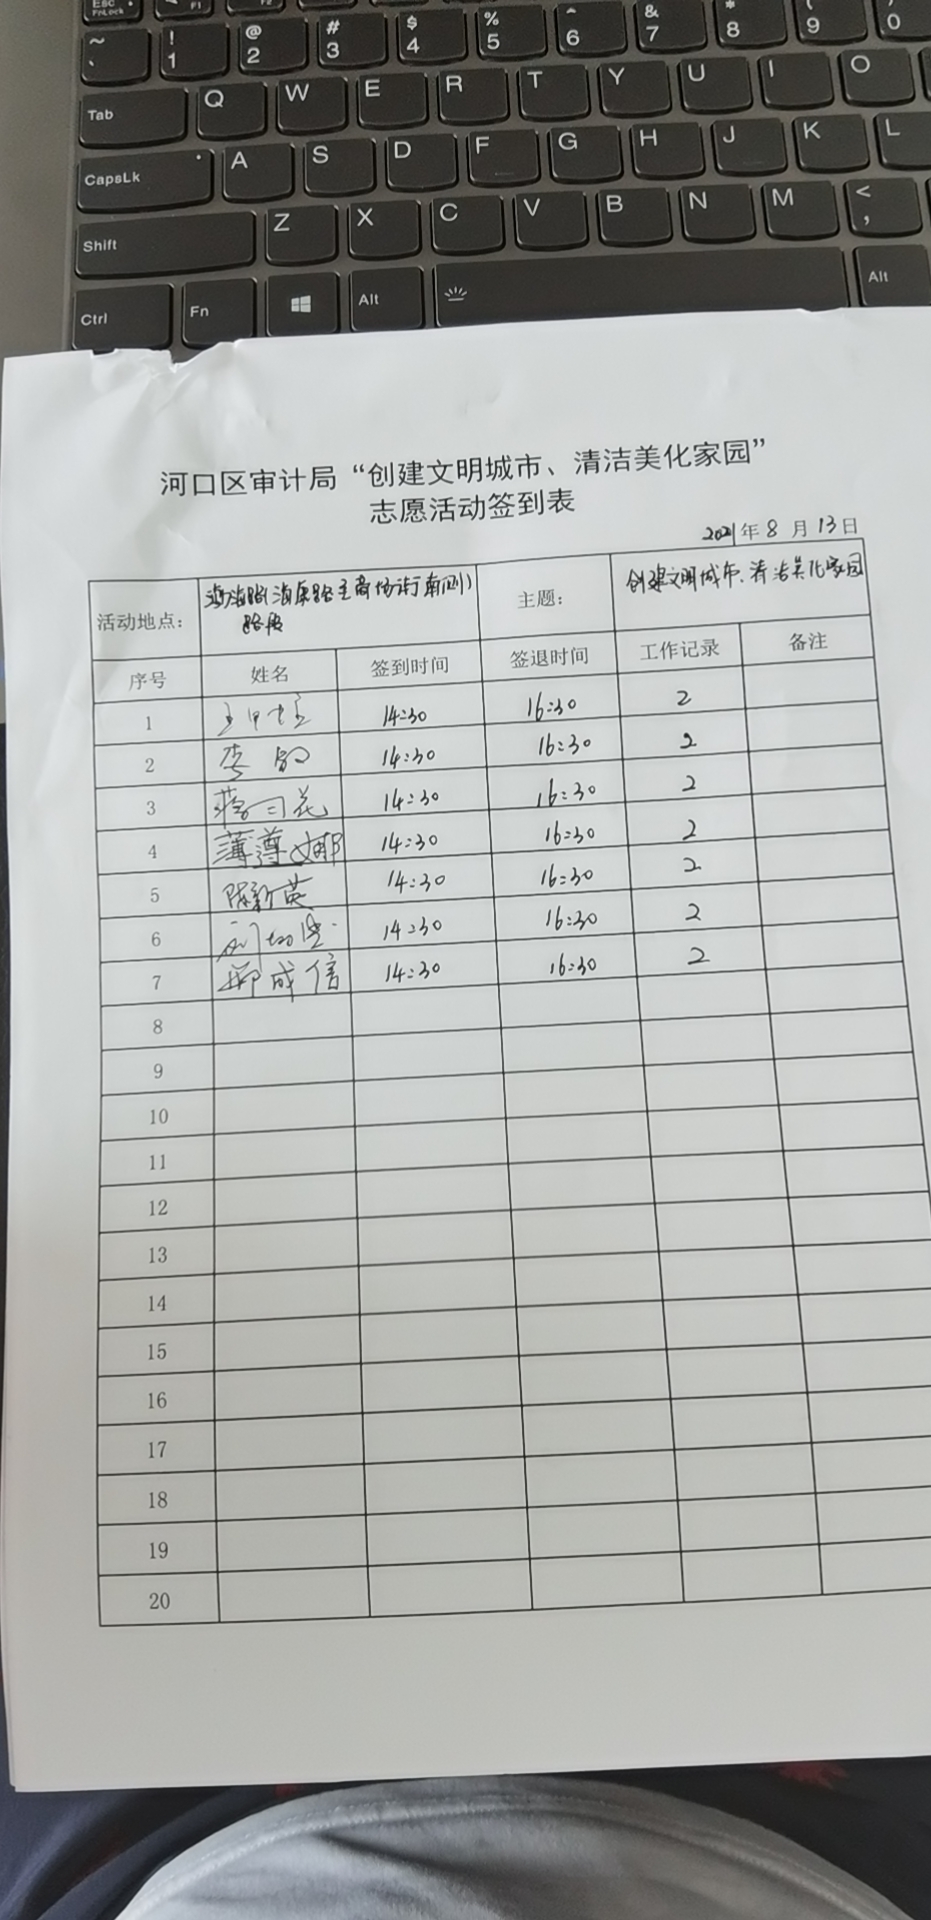 Esc
FnLock
F1
F2
~ ` ! 1 @ 2 # 3 $ 4 % 5 ^ 6 & 7 * 8 ( 9 ) 0
Tab Q W E R T Y U I O
CapsLk A S D F G H J K L
Shift Z X C V B N M < ,
Ctrl Fn Alt Alt
河口区审计局“创建文明城市、清洁美化家园”
志愿活动签到表
2021年8月13日
活动地点： 路段 主题： 创建文明城市、清洁美化家园
序号 姓名 签到时间 签退时间 工作记录 备注
1 14:30 16:30 2
2 李 14:30 16:30 2
3 14:30 16:30 2
4 薄尊娜 14:30 16:30 2
5 陈新英 14:30 16:30 2
6 14:30 16:30 2
7 成信 14:30 16:30 2
8
9
10
11
12
13
14
15
16
17
18
19
20